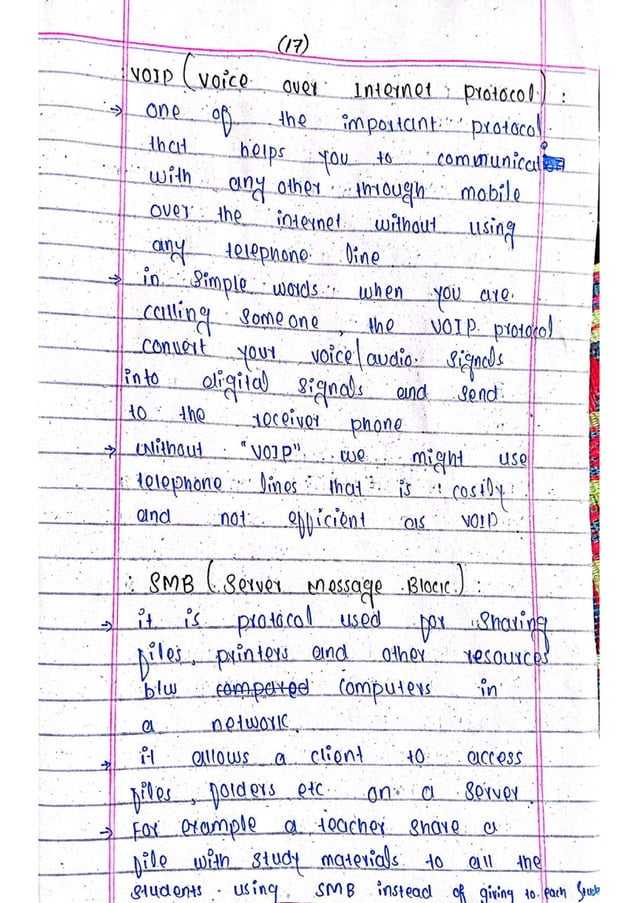 (17)
∴ VOIP (Voice over Internet protocol) :
→ one of the important protocol
that helps you to communicat
with any other through mobile
over the internet without using
any telephone line
→ in simple words when you are
calling someone, the VOIP protocol
convert your voice/audio signals
into digital signals and send
to the receiver phone
→ without "VOIP" we might use
telephone lines that is costly
and not efficient as VOIP
∴ SMB (Server Message Block) :
→ it is protocol used for sharing
files, printers and other resources
b/w compared computers in
a network.
→ it allows a client to access
files, folders etc on a server
→ For example a teacher share a
file with study materials to all the
students using SMB instead of giving to each